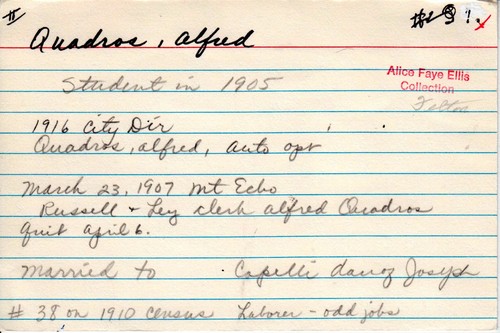 II
Quadros, Alfred
Student in 1905
Alice Faye Ellis
Collection
Felton
1916 City Dir
Quadros, Alfred, auto opr
March 23, 1907 Mt Echo
Russell + Ley clerk Alfred Quadros
quit April 6.
Married to Capelli dau of Joseph
# 38 on 1910 census Laborer - odd jobs